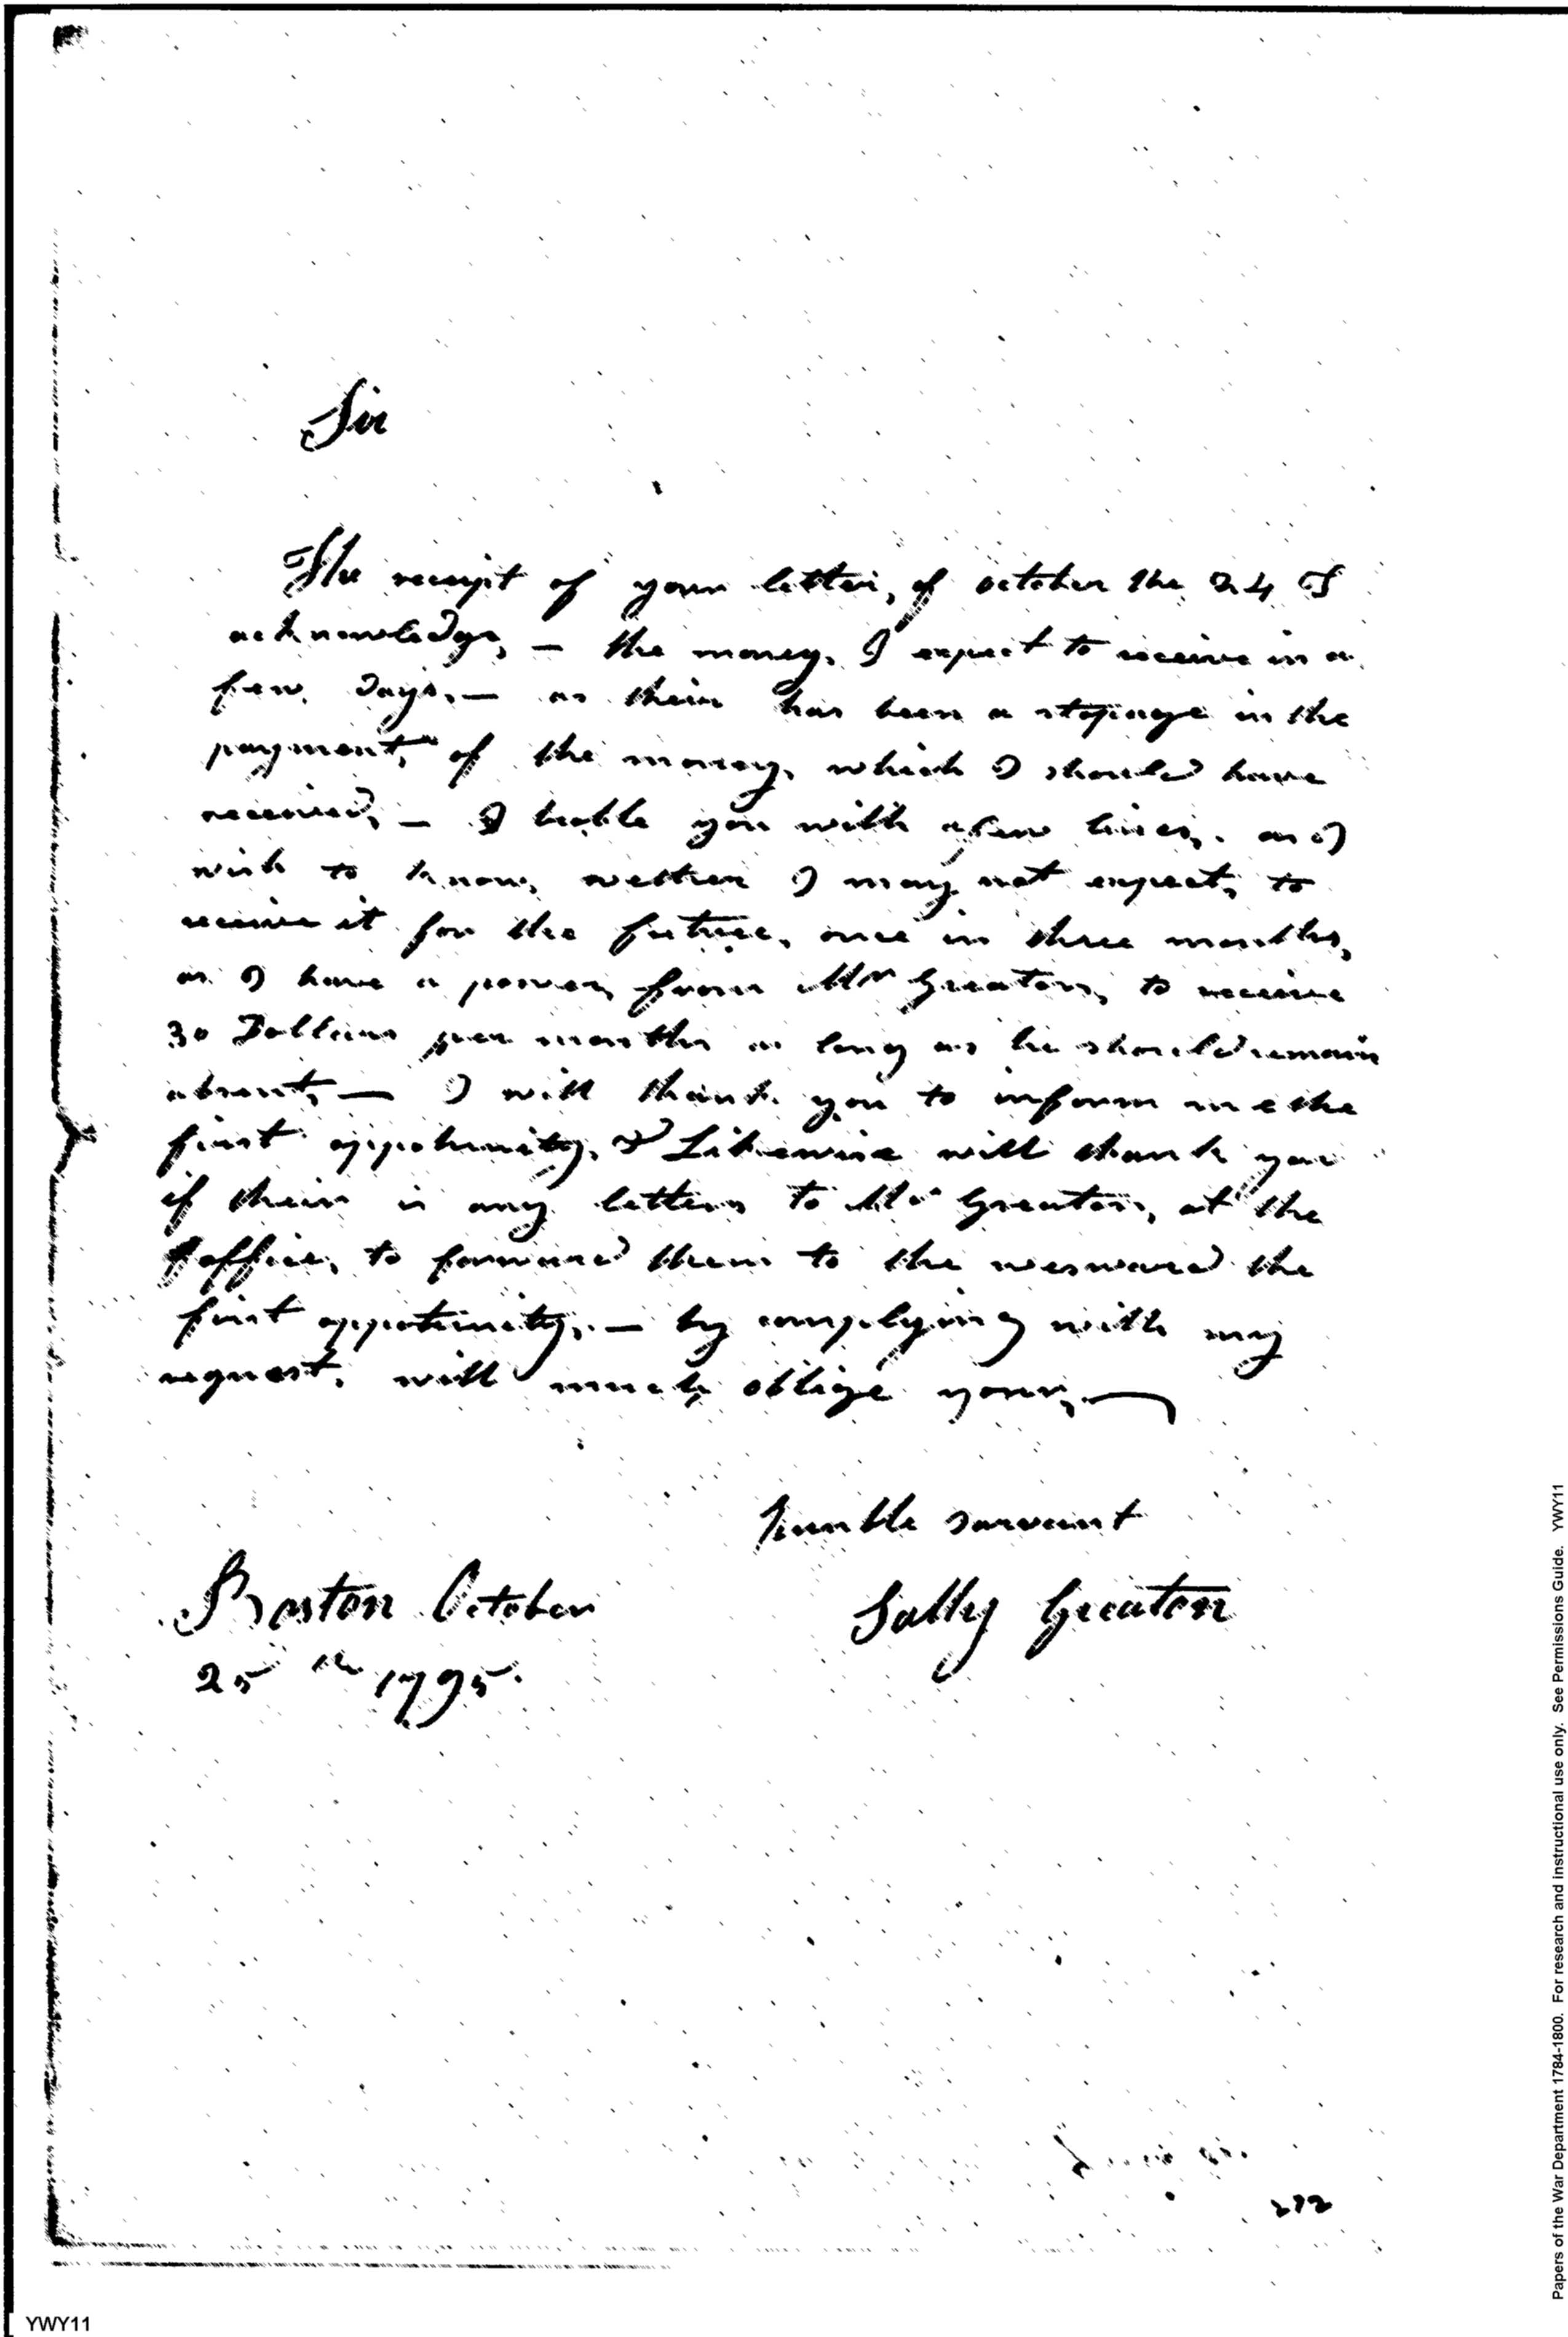 Sir
The receipt of your letter, of october the 24 I
acknowledge, — the money, I expect to receive in a
few days, — as their has been a stopage in the
payment, of the money, which I should have
received, — I troble you with a few lines, as I
wish to know, wether I may not expect, to
receive it for the future, once in three months,
as I have a power, from Mr Greaton, to receive
30 Dollars per months as long as he should remain
absent, — I will thank you to inform me the
first oppotunity, & Likewise will thank you
if their is any letters to Mr Greaton, at the
office, to forward them to the wesward the
first oppotunity, — by complying with my
request, will much oblige your,
humble sarvant
Sally Greaton
Boston October
25th 1795
272
YWY11
Papers of the War Department 1784-1800. For research and instructional use only. See Permissions Guide. YWY11